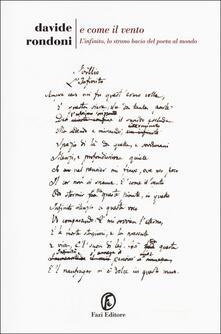 davide
rondoni
e come il vento
L'infinito, lo strano bacio del poeta al mondo
Idillio
L'Infinito
Sempre caro mi fu quest'ermo colle,
E questa siepe, che da tanta parte
il guardo esclude.
Ma sedendo e mirando,
Spazio di là da quella, e sovrumani
Silenzi, e profondissima quiete
Io nel pensier mi fingo, ove per poco
Il cor non si spaura. E come il vento
Odo stormir fra queste piante, io quello
Infinito silenzio a questa voce
Vo comparando: E mi sovvien l'eterno,
E le morte stagioni, e la presente
E viva, e 'l suon di lei. Così fra questa
E 'l naufragar m'è dolce in questo mare.
Fazi Editore